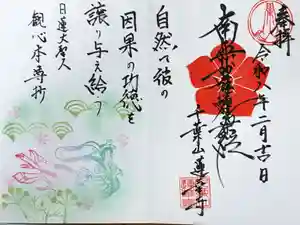 奉拝
令和八年二月吉日
南無妙法蓮華経
千葉山
自然に彼の
因果の功徳を
譲り与え給う
日蓮大聖人
観心本尊抄